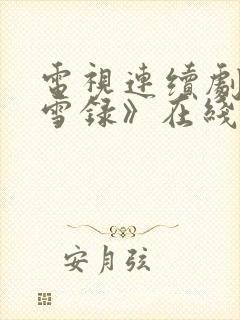 電視連續劇
雪録》在綫
安月弦